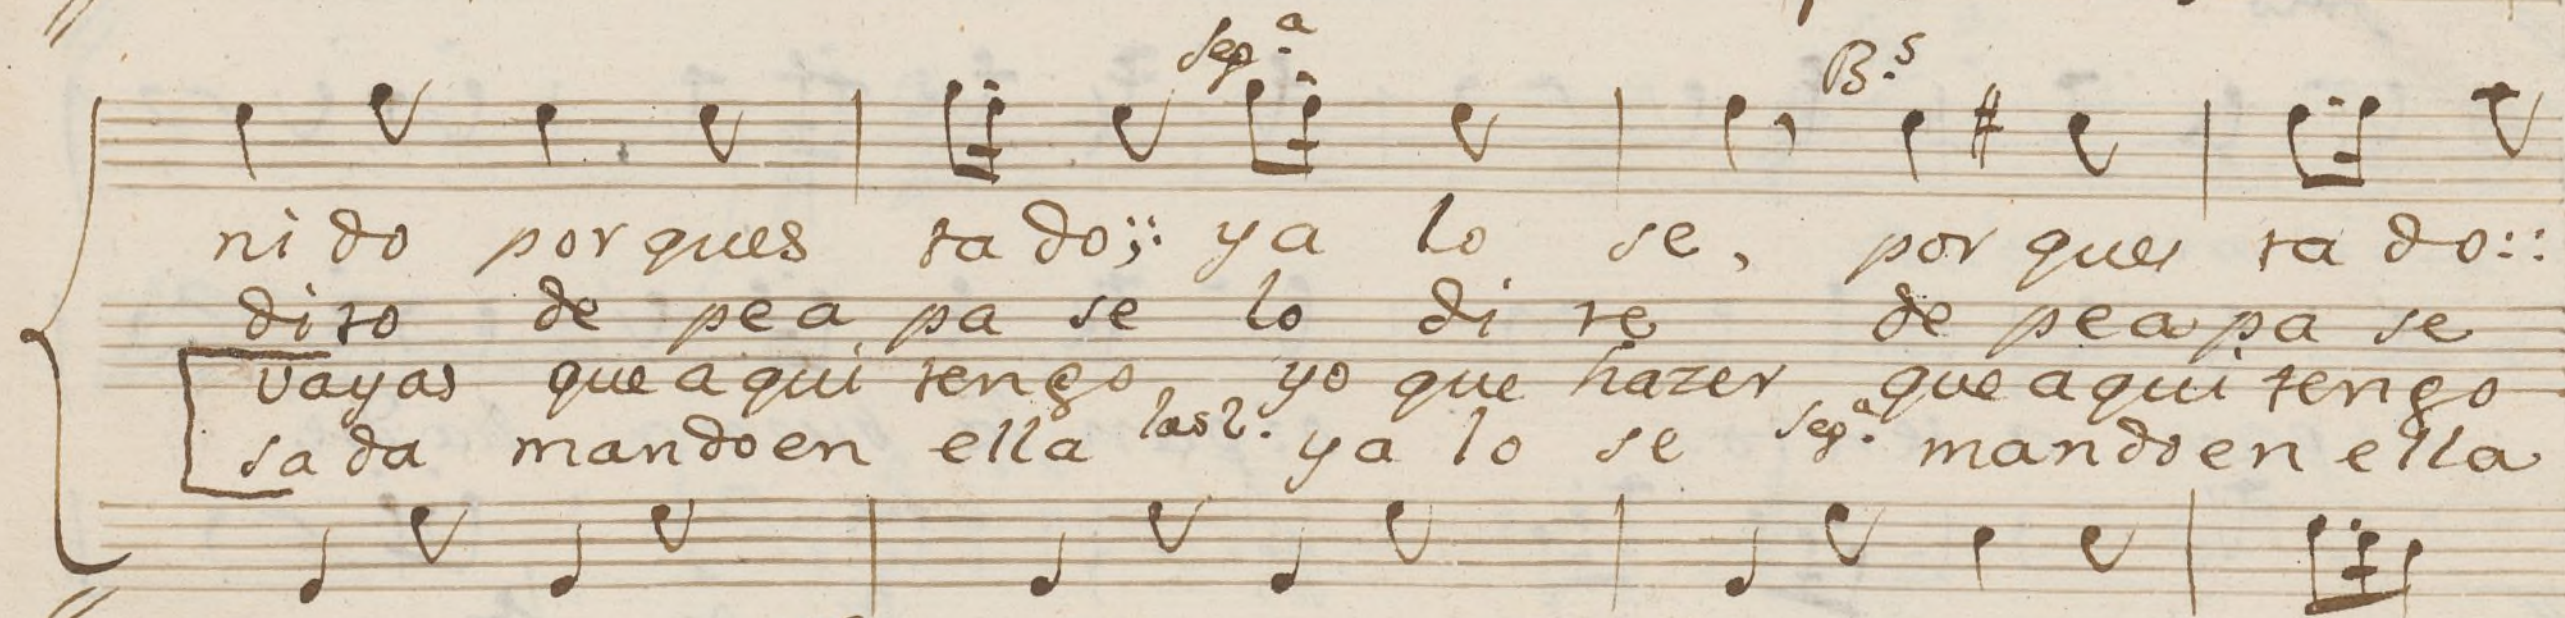 Sep.ª B.s
ni do por ques ta do;: ya lo se, por ques ta do::
di to de pe a pa se lo di re de pe a pa se
vayas que a qui tengo yo que hazer que a qui tengo
sa da mando en ella las 2. ya lo se Sep.ª mando en ella